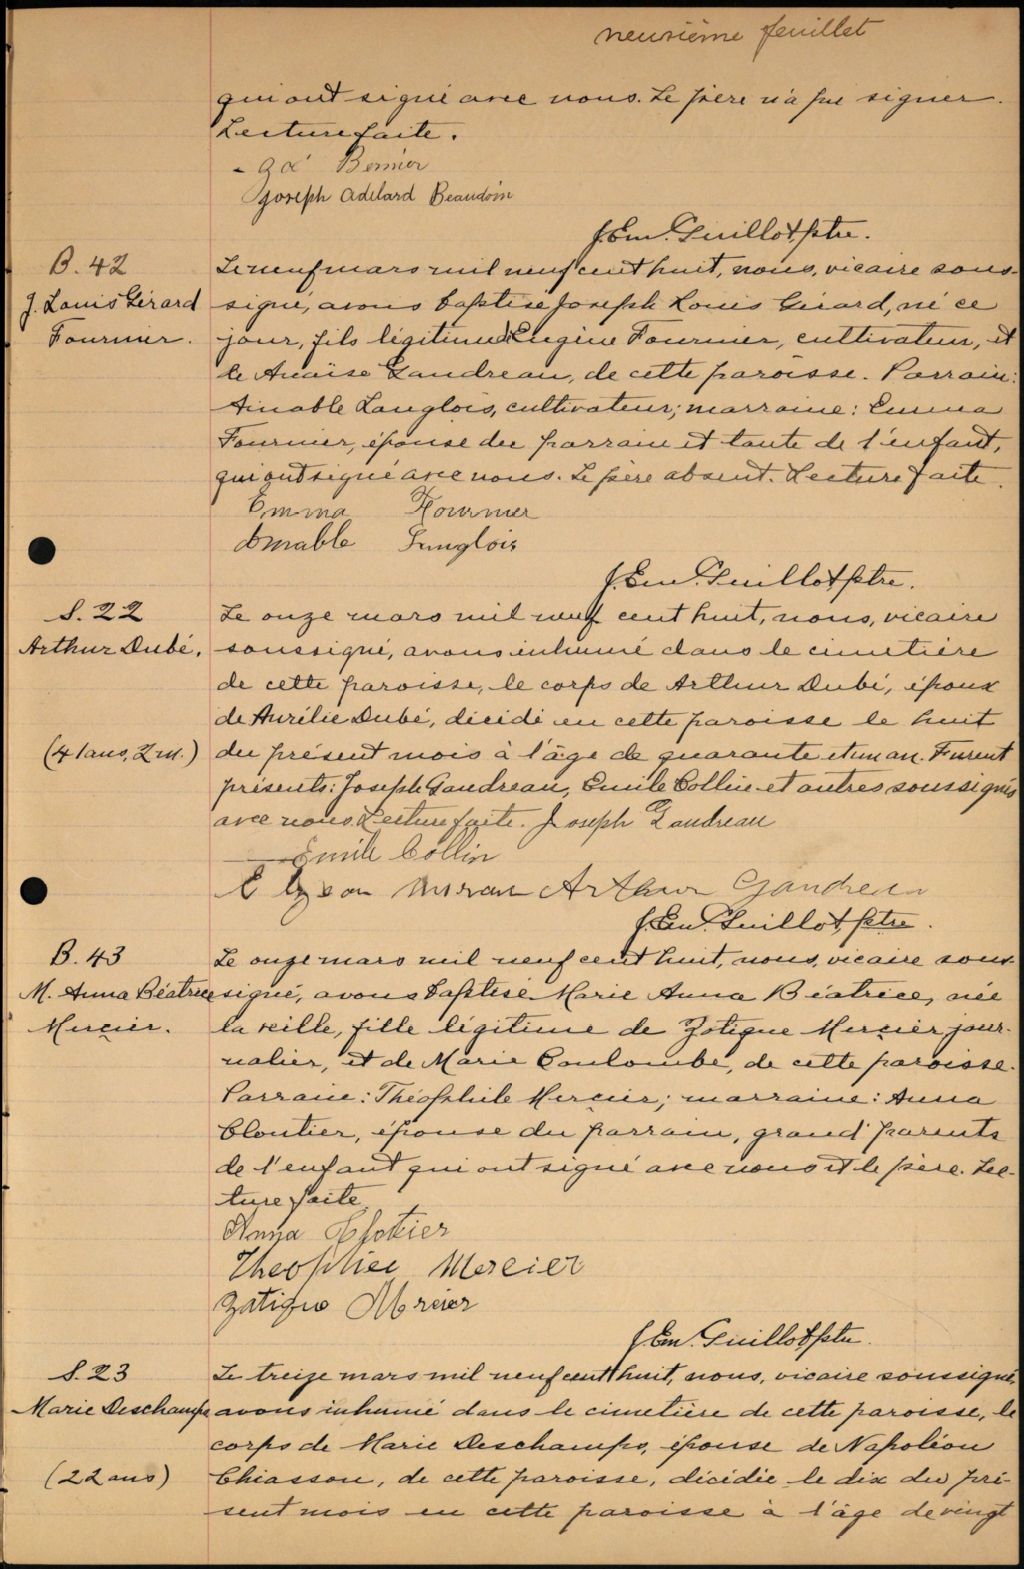 neuvième feuillet
qui ont signé avec nous. Le père n'a pu signer.
Lecture faite.
Bernier
Joseph Adélard Beaudoin
J. Em. Guillot, ptre.
B. 42
J. Louis Gérard
Fournier.
Le neuf mars mil neuf cent huit, nous, vicaire sous-
signé, avons baptisé Joseph Louis Gérard, né ce
jour, fils légitime d'Eugène Fournier, cultivateur, et
de Anaïse Gaudreau, de cette paroisse. Parrain:
Aimable Langlois, cultivateur; marraine: Emma
Fournier, épouse du parrain et tante de l'enfant,
qui ont signé avec nous. Le père absent. Lecture faite.
Emma Fournier
Aimable Langlois
J. Em. Guillot, ptre.
S. 22
Arthur Dubé.
(41 ans, 2 m.)
Le onze mars mil neuf cent huit, nous, vicaire
soussigné, avons inhumé dans le cimetière
de cette paroisse, le corps de Arthur Dubé, époux
de Aurélie Dubé, décédé en cette paroisse le huit
du présent mois à l'âge de quarante et un an. Furent
présents: Joseph Gaudreau, Emile Collin et autres soussignés
avec nous. Lecture faite. Joseph Gaudreau
Emile Collin
Arthur Gaudreau
J. Em. Guillot, ptre.
B. 43
M. Anna Béatrice
Mercier.
Le onze mars mil neuf cent huit, nous, vicaire sous-
signé, avons baptisé Marie Anna Béatrice, née
la veille, fille légitime de Zotique Mercier, jour-
nalier, et de Marie Coulombe, de cette paroisse.
Parrain: Théophile Mercier; marraine: Anna
Cloutier, épouse du parrain, grand'parents
de l'enfant qui ont signé avec nous et le père. Lec-
ture faite.
Anna Clotier
Theophile Mercier
Zotique Mercier
J. Em. Guillot, ptre.
S. 23
Marie Deschamps
(22 ans)
Le treize mars mil neuf cent huit, nous, vicaire soussigné,
avons inhumé dans le cimetière de cette paroisse, le
corps de Marie Deschamps, épouse de Napoléon
Chiasson, de cette paroisse, décédée le dix du pré-
sent mois en cette paroisse à l'âge de vingt